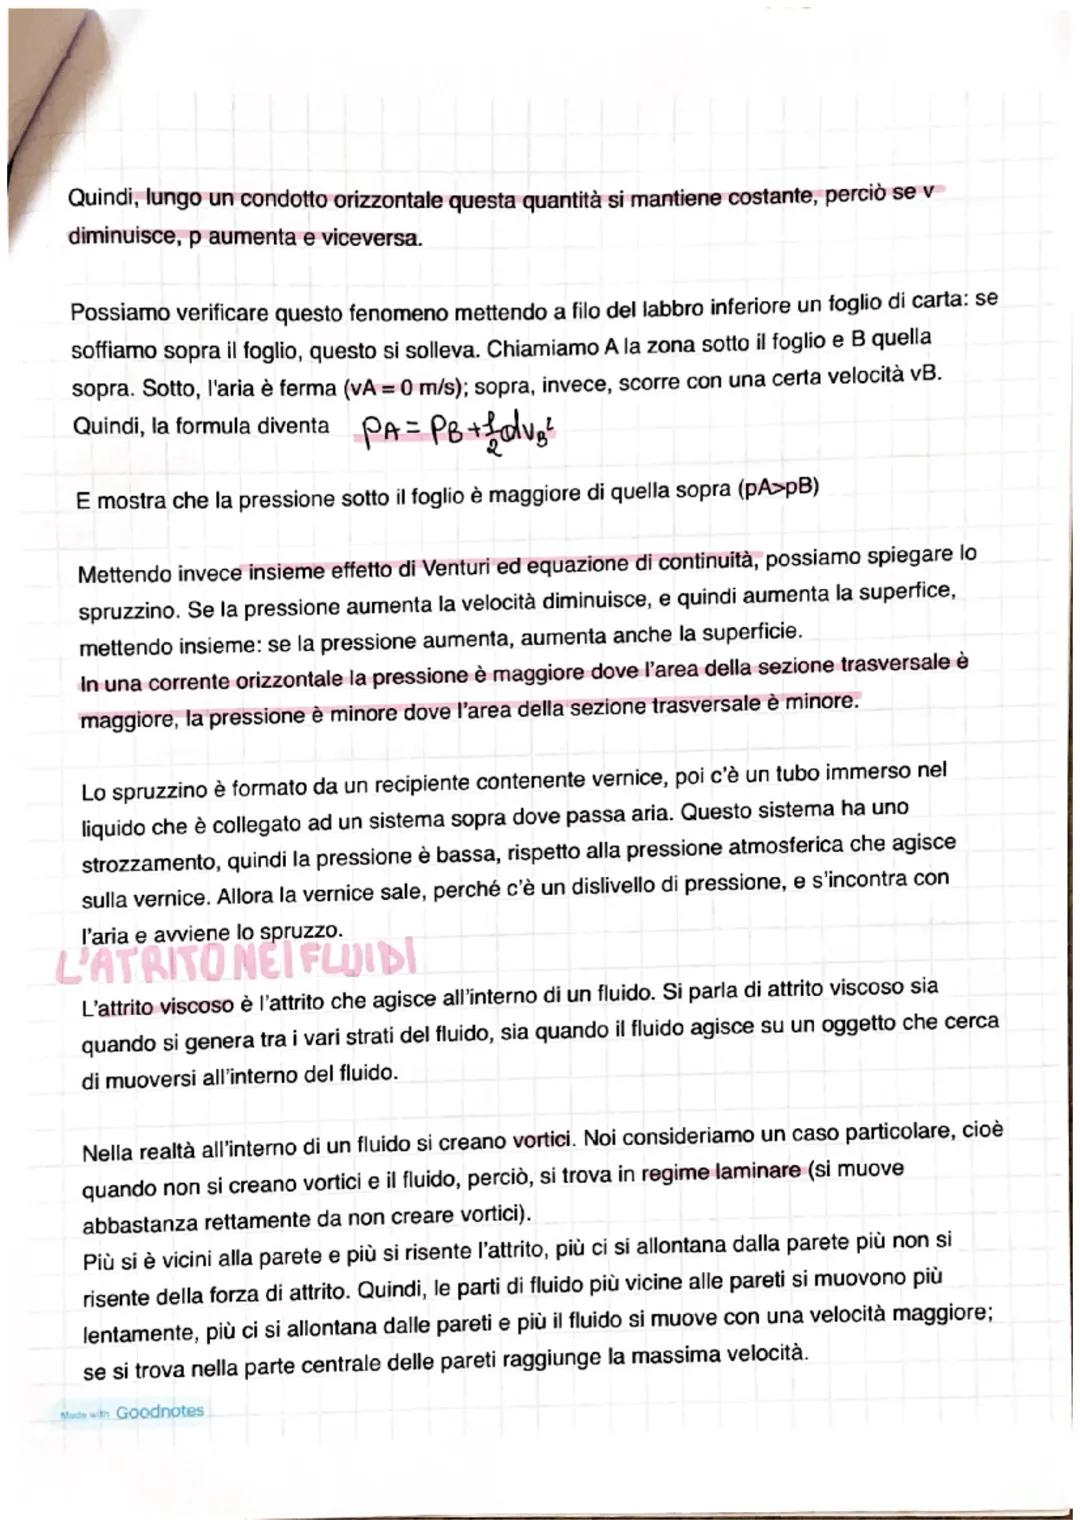 Quindi, lungo un condotto orizzontale questa quantità si mantiene costante, perciò se v
diminuisce, p aumenta e viceversa.
Possiamo verificare questo fenomeno mettendo a filo del labbro inferiore un foglio di carta: se
soffiamo sopra il foglio, questo si solleva. Chiamiamo A la zona sotto il foglio e B quella
sopra. Sotto, l'aria è ferma (vA = 0 m/s); sopra, invece, scorre con una certa velocità vB.
Quindi, la formula diventa pA = pB + 1/2 dvB²
E mostra che la pressione sotto il foglio è maggiore di quella sopra (pA>pB)
Mettendo invece insieme effetto di Venturi ed equazione di continuità, possiamo spiegare lo
spruzzino. Se la pressione aumenta la velocità diminuisce, e quindi aumenta la superfice,
mettendo insieme: se la pressione aumenta, aumenta anche la superficie.
In una corrente orizzontale la pressione è maggiore dove l'area della sezione trasversale è
maggiore, la pressione è minore dove l'area della sezione trasversale è minore.
Lo spruzzino è formato da un recipiente contenente vernice, poi c'è un tubo immerso nel
liquido che è collegato ad un sistema sopra dove passa aria. Questo sistema ha uno
strozzamento, quindi la pressione è bassa, rispetto alla pressione atmosferica che agisce
sulla vernice. Allora la vernice sale, perché c'è un dislivello di pressione, e s'incontra con
l'aria e avviene lo spruzzo.
L'ATRITO NEI FLUIDI
L'attrito viscoso è l'attrito che agisce all'interno di un fluido. Si parla di attrito viscoso sia
quando si genera tra i vari strati del fluido, sia quando il fluido agisce su un oggetto che cerca
di muoversi all'interno del fluido.
Nella realtà all'interno di un fluido si creano vortici. Noi consideriamo un caso particolare, cioè
quando non si creano vortici e il fluido, perciò, si trova in regime laminare (si muove
abbastanza rettamente da non creare vortici).
Più si è vicini alla parete e più si risente l'attrito, più ci si allontana dalla parete più non si
risente della forza di attrito. Quindi, le parti di fluido più vicine alle pareti si muovono più
lentamente, più ci si allontana dalle pareti e più il fluido si muove con una velocità maggiore;
se si trova nella parte centrale delle pareti raggiunge la massima velocità.
Made with Goodnotes